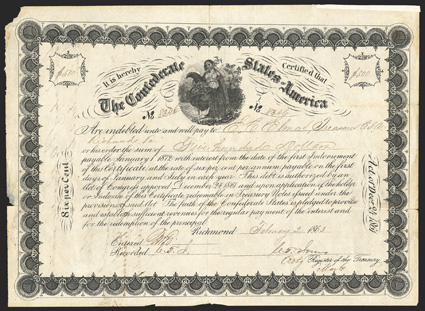 $500
$500
It is hereby Certified that
The Confederate States of America
No No
Are indebted unto and will pay to
or his order the sum of Five Hundred Dollars
payable January 1 187 with interest from the date of the first Endorsement
of this Certificate, at the rate of six per cent per annum payable on the first
days of January and July in each year. This debt is authorized by an
Act of Congress approved December 24 1861 and upon application of the holder
or Indorsee of this Certificate reissuable in Treasury Notes issued under the
provisions of said Act. The faith of the Confederate States is pledged to provide
and establish sufficient revenues for the regular payment of the interest and
for the redemption of the principal.
Richmond February 2 1863
Entered
Recorded
Register of the Treasury
Six per cent
Act of Decr 24 1861